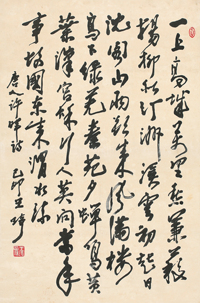 一上高城萬里愁蒹葭
楊柳似汀洲溪雲初起日
沉閣山雨欲來風滿樓
鳥下綠蕪秦苑夕蟬鳴黃
葉漢宮秋行人莫問當年
事故國東來渭水流
唐許渾詩
乙卯王